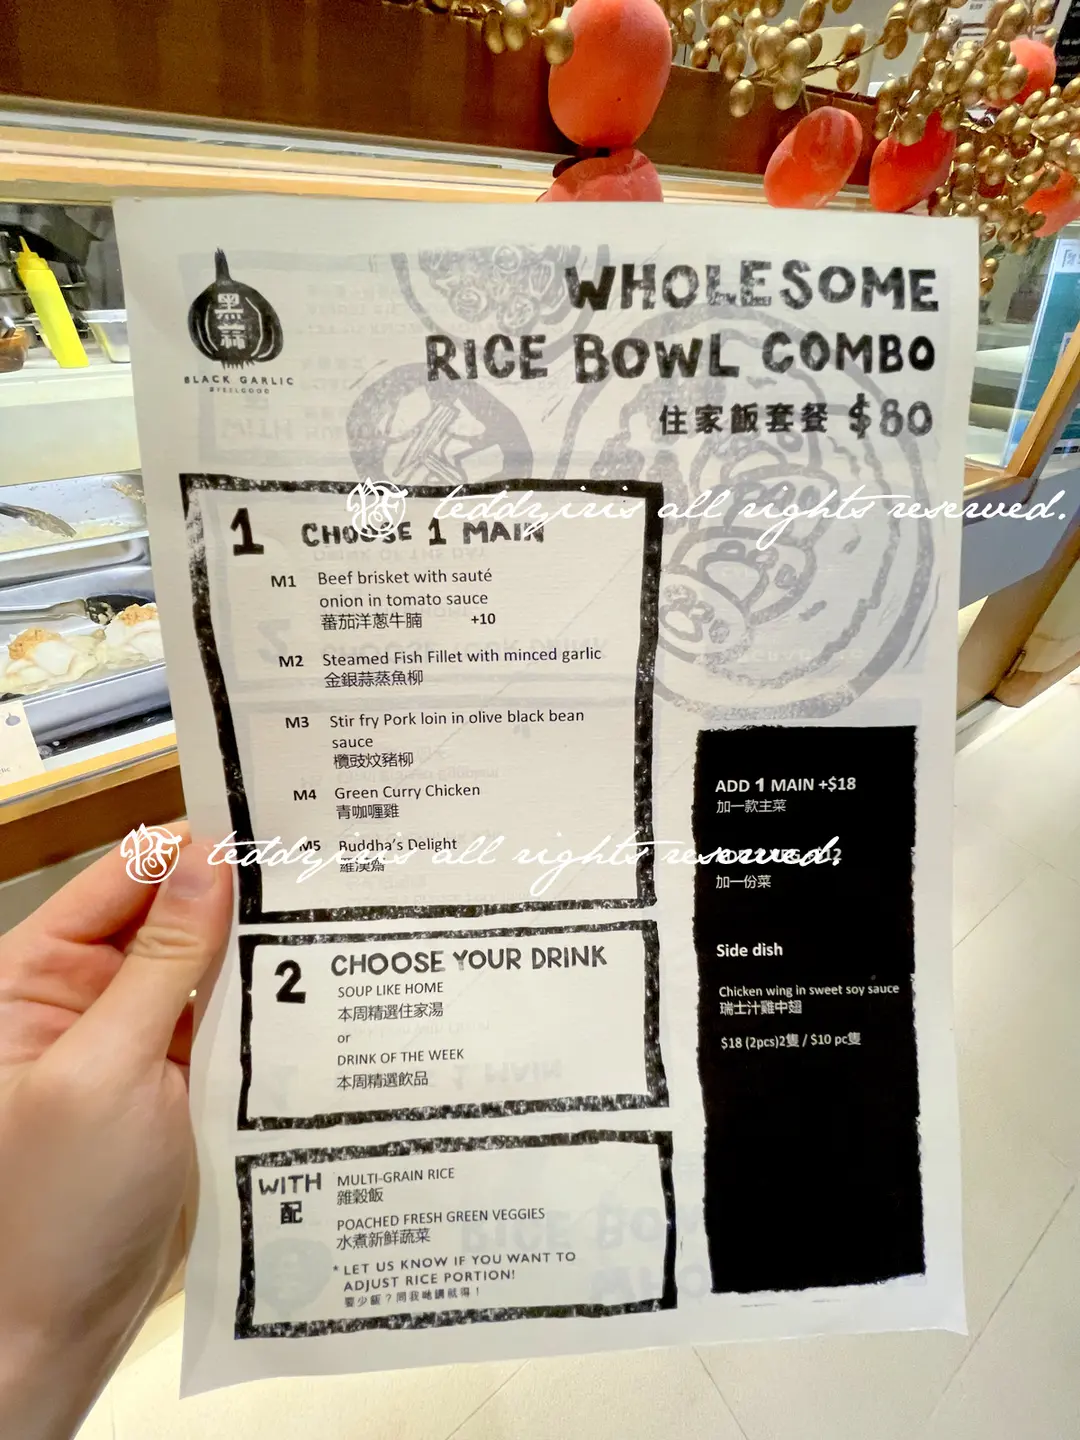 黑
蒜
BLACK GARLIC
#FEELGOOD
WHOLESOME
RICE BOWL COMBO
住家飯套餐 $80
1 CHOOSE 1 MAIN
M1 Beef brisket with sauté
onion in tomato sauce
蕃茄洋蔥牛腩 +10
M2 Steamed Fish Fillet with minced garlic
金銀蒜蒸魚柳
M3 Stir fry Pork loin in olive black bean
sauce
欖豉炆豬柳
M4 Green Curry Chicken
青咖喱雞
M5 Buddha's Delight
羅漢齋
2 CHOOSE YOUR DRINK
SOUP LIKE HOME
本周精選住家湯
or
DRINK OF THE WEEK
本周精選飲品
WITH
配
MULTI-GRAIN RICE
雜穀飯
POACHED FRESH GREEN VEGGIES
水煮新鮮蔬菜
* LET US KNOW IF YOU WANT TO
ADJUST RICE PORTION!
要少飯？同我哋講就得！
ADD 1 MAIN +$18
加一款主菜
加一份菜
Side dish
Chicken wing in sweet soy sauce
瑞士汁雞中翅
$18 (2pcs)2隻 / $10 pc隻
teddyiris all rights reserved.
teddyiris all rights reserved.